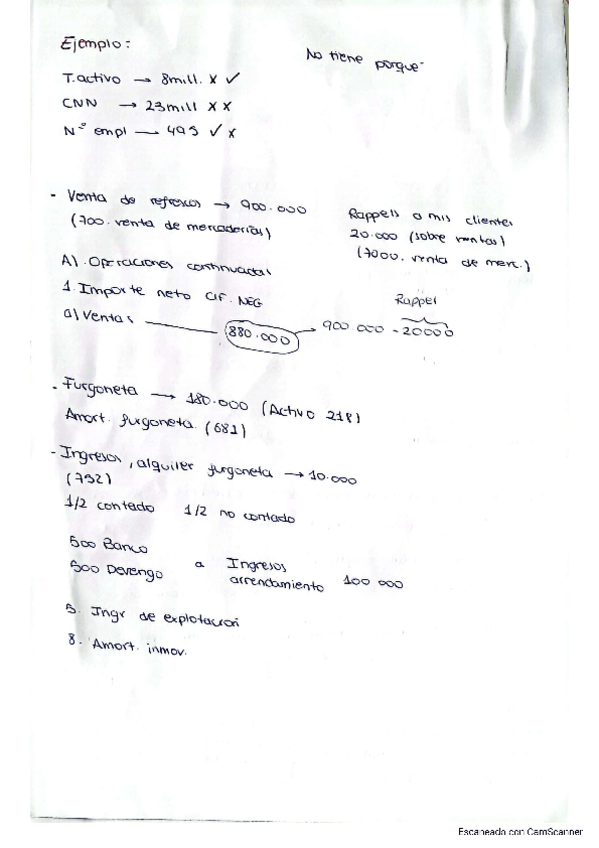 Ejemplo:
No tiene porque
T.activo → 8mill. x ✓
CNN → 23mill x x
Nº empl — 495 ✓ x
- Venta de refrescos → 900.000
(700. venta de mercaderías)
Rappels a mis clientes
20.000 (sobre ventas)
(7000. venta de merc.)
A). Operaciones continuadas
1. Importe neto cif. NEG
a) Ventas — 880.000 → 900 000 - 20000
Rappel
- Furgoneta → 180.000 (Activo 218)
Amort. furgoneta (681)
- Ingresos, alquiler furgoneta → 10.000
(752)
1/2 contado 1/2 no contado
500 Banco
500 Devengo a Ingresos arrendamiento 100 000
5. Ingr de explotacion
8. Amort. inmov.
Escaneado con CamScanner